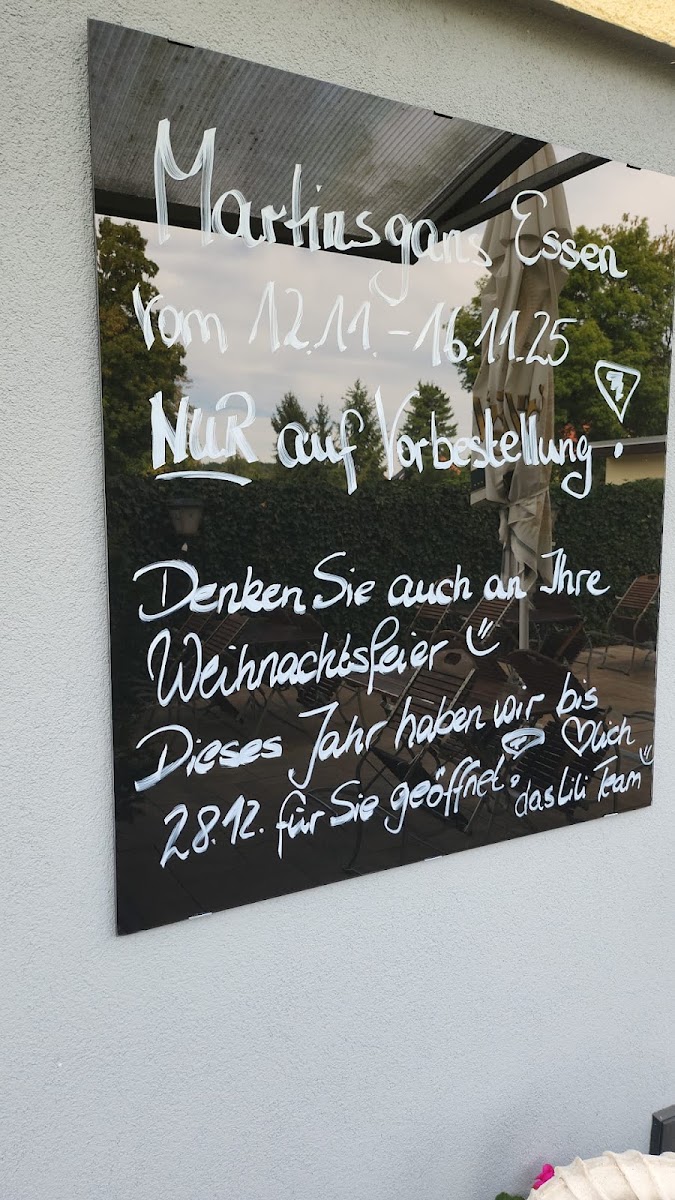 Martinsgans Essen
vom 12.11.-16.11.25
NUR auf Vorbestellung!
Denken Sie auch an Ihre
Weihnachtsfeier
Dieses Jahr haben wir bis
28.12. für Sie geöffnet.
♡lich
das Lili Team